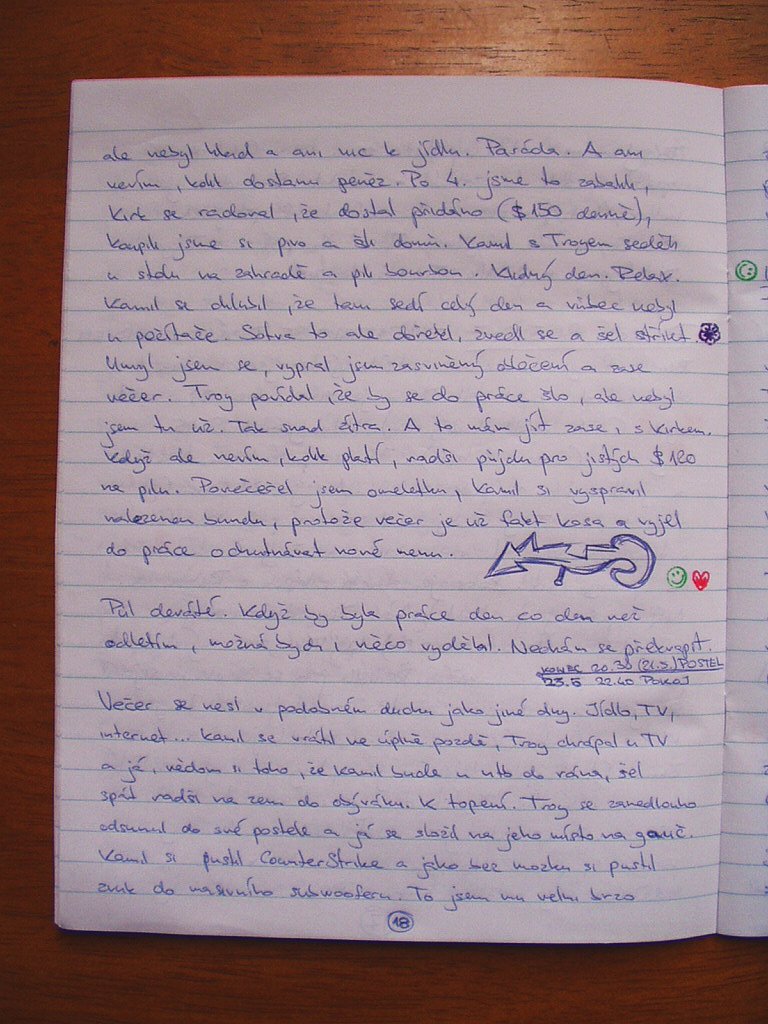 ale nebyl hlad a ani nic k jídlu. Paráda. A ani
nevím, kolik dostanu peněz. Po 4. jsme to zabalili,
Kirk se radoval, že dostal přidáno ($150 denně),
koupili jsme si pivo a šli domů. Kamil s Troyem seděli
u stolu na zahradě a pili bourbon. Klidný den. Relax.
Kamil se chlubil, že tam sedí celý den a vůbec nebyl
u počítače. Sotva to ale dořekl, zvedl se a šel střílet
Umyl jsem se, vypral jsem zasviněný oblečení a zase
večer. Troy povídal, že by se do práce šlo, ale nebyl
jsem tu už. Tak snad zítra. A to mám jít zase, s Kirkem.
Když ale nevím, kolik platí, radši půjdu pro jistých $120
na pilu. Povečeřel jsem omeletku, Kamil si vyspravil
nalezenou bundu, protože večer je už fakt kosa a vyjel
do práce ochutnávat nové menu.
Půl deváté. Když by byla práce den co den než
odletím, možná bych i něco vydělal. Nechám se překvapit.
KONEC 20.30 (21.5) POSTEL
23.5 22.40 POKOJ
Večer se nesl v podobném duchu jako jiné dny. Jídlo, TV,
internet... Kamil se vrátil ne úplně pozdě, Troy chrápal u TV
a já, vědom si toho, že Kamil bude u ntb do rána, šel
spát radši na zem do obýváku. K topení. Troy se zanedlouho
odsunul do své postele a já se složil na jeho místo na gauč.
Kamil si pustil CounterStrike a jako bez mozku si pustil
zvuk do masivního subwooferu. To jsem mu velmi brzo
18